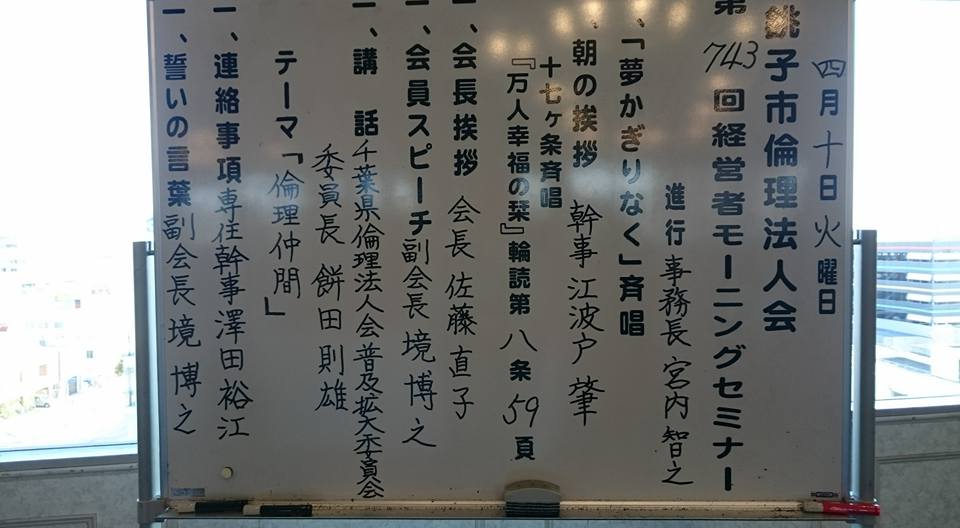 四月十日火曜日
銚子市倫理法人会
第743回経営者モーニングセミナー
進行 事務長 宮内 智之
一、「夢かぎりなく」斉唱
一、朝の挨拶 幹事 江波戸 肇
十七ヶ条斉唱
『万人幸福の栞』輪読第 八 条 59 頁
一、会長挨拶 会長 佐藤 直子
一、会員スピーチ 副会長 境 博之
一、講 話 千葉県倫理法人会普及拡大委員会
委員長 餅田 則雄
テーマ「倫理仲間」
一、連絡事項 専任幹事 澤田 裕江
一、誓いの言葉 副会長 境 博之